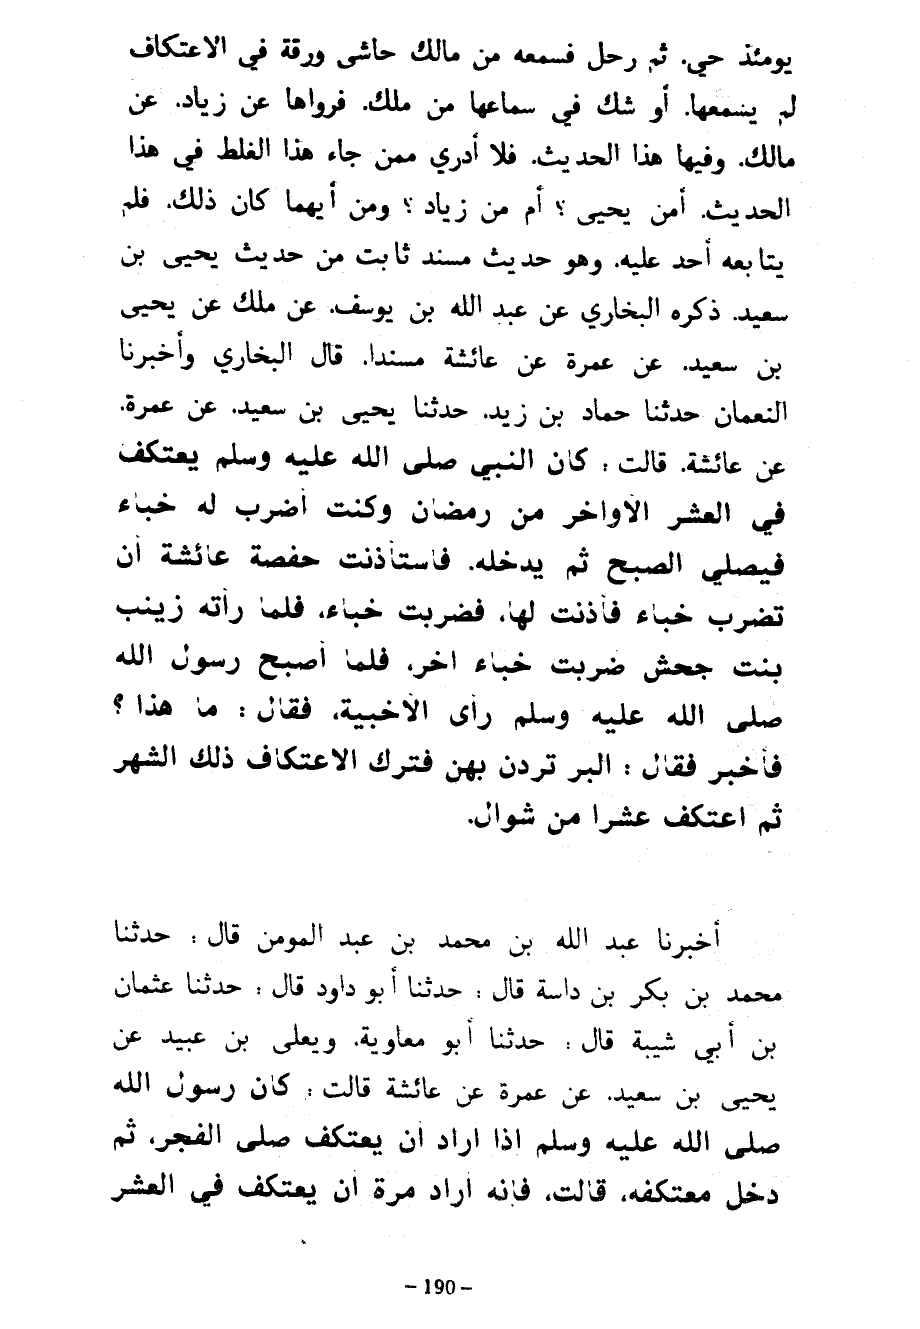 يومئذ حي. ثم رحل فسمعه من مالك حاشى ورقة في الاعتكاف
لم يسمعها. أو شك في سماعها من ملك. فرواها عن زياد. عن
مالك. وفيها هذا الحديث. فلا أدري ممن جاء هذا الغلط في هذا
الحديث. أمن يحيى ؟ أم من زياد ؟ ومن أيهما كان ذلك. فلم
يتابعه أحد عليه. وهو حديث مسند ثابت من حديث يحيى بن
سعيد. ذكره البخاري عن عبد الله بن يوسف. عن ملك عن يحيى
بن سعيد. عن عمرة عن عائشة مسندا. قال البخاري وأخبرنا
النعمان حدثنا حماد بن زيد. حدثنا يحيى بن سعيد. عن عمرة.
عن عائشة. قالت : كان النبي صلى الله عليه وسلم يعتكف
في العشر الأواخر من رمضان وكنت أضرب له خباء
فيصلي الصبح ثم يدخله. فاستأذنت حفصة عائشة أن
تضرب خباء فأذنت لها. فضربت خباء. فلما رأته زينب
بنت جحش ضربت خباء اخر. فلما أصبح رسول الله
صلى الله عليه وسلم رأى الأخبية. فقال : ما هذا ؟
فأخبر فقال : البر تردن بهن فترك الاعتكاف ذلك الشهر
ثم اعتكف عشرا من شوال.
أخبرنا عبد الله بن محمد بن عبد المومن قال : حدثنا
محمد بن بكر بن داسة قال : حدثنا أبو داود قال : حدثنا عثمان
بن أبي شيبة قال : حدثنا أبو معاوية. ويعلى بن عبيد عن
يحيى بن سعيد. عن عمرة عن عائشة قالت : كان رسول الله
صلى الله عليه وسلم اذا اراد ان يعتكف صلى الفجر. ثم
دخل معتكفه. قالت. فإنه اراد مرة ان يعتكف في العشر
- 190 -